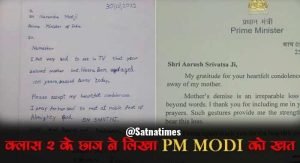 30/12/2022
Shri Narendra Modi
Prime Minister of India
Namaste!
I felt very sad to see in TV that your
beloved mother Smt. Heera Ben
100 years
Please accept my heartfelt condolences
I pray
Almighty God.
OM SHANTI
प्रधान मंत्री
Prime Minister
Shri Aarush Srivatsa Ji,
My gratitude for your heartfelt condolences
away of my mother.
Mother's demise is an irreparable loss
beyond words. I thank you for including me in
prayers. Such gestures provide me the strength
bear this
@Satnatimes
क्लास २ के छात्र ने लिखा PM MODI को खत